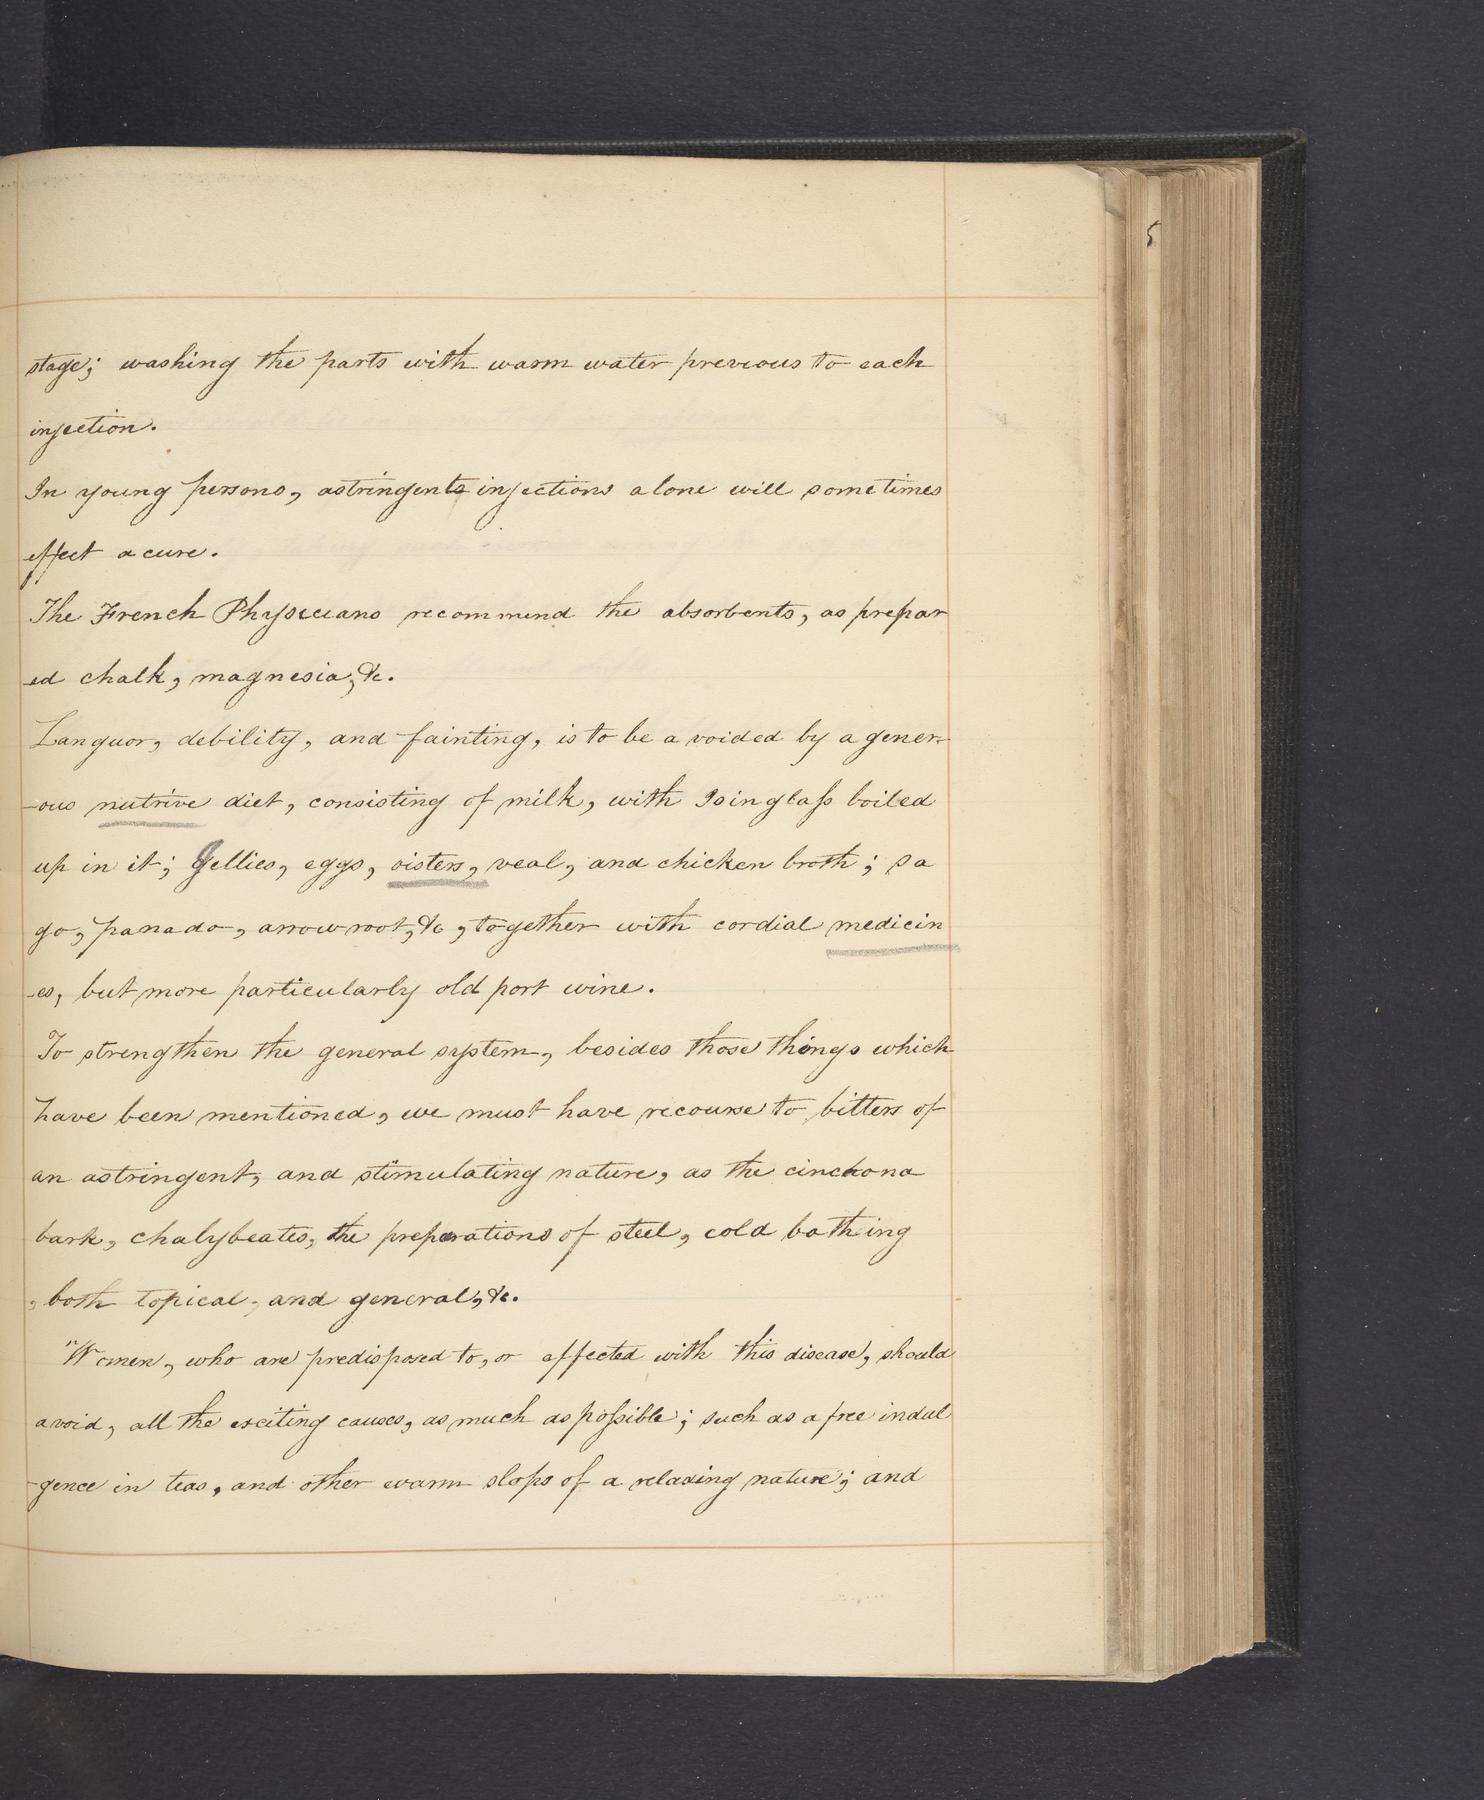 5
stage; washing the parts with warm water previous to each
injection.
In young persons, astringents injections alone will sometimes
effect a cure.
The French Physicians recommend the absorbents, as prepar
ed chalk, magnesia, &c.
Languor, debility, and fainting, is to be avoided by a gener-
-ous nutrive diet, consisting of milk, with Isinglass boiled
up in it; Gellies, eggs, oisters, veal, and chicken broth; sa
go, panado, arrowroot, &c, together with cordial medicin
-es, but more particularly old port wine.
To strengthen the general system, besides those things which
have been mentioned, we must have recourse to bitters of
an astringent, and stimulating nature, as the cinchona
bark, chalybeates, the preparations of steel, cold bathing
, both topical, and general, &c.
Women, who are predisposed to, or affected with this disease, should
avoid, all the exciting causes, as much as possible; such as a free indul
-gence in teas, and other warm slops of a relaxing nature; and